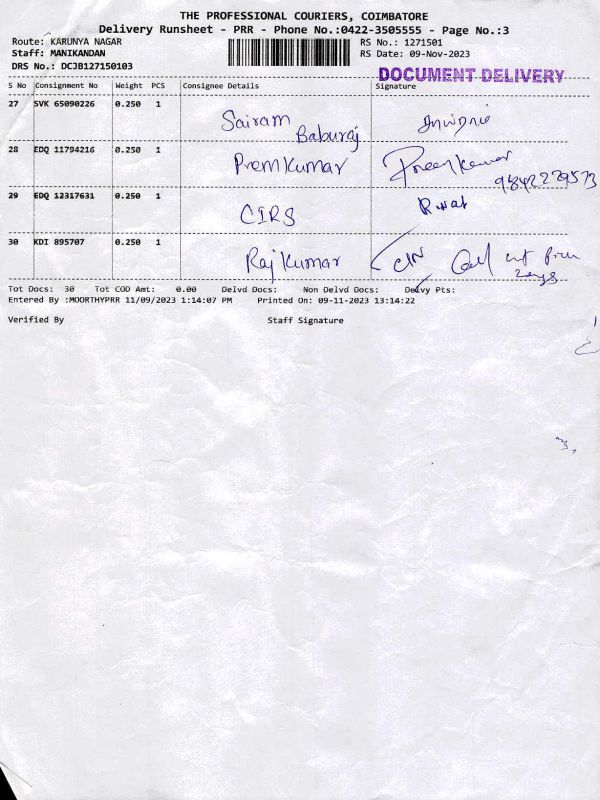 THE PROFESSIONAL COURIERS, COIMBATORE
Delivery Runsheet - PRR - Phone No.:0422-3505555 - Page No.:3
Route: KARUNYA NAGAR RS No.: 1271501
Staff: MANIKANDAN RS Date: 09-Nov-2023
DRS No.: DCJB127150103
DOCUMENT DELIVERY
S No Consignment No Weight PCS Consignee Details Signature
27 SVK 65090226 0.250 1 Sairam Baburaj
28 EDQ 11794216 0.250 1 Premkumar
9842229573
29 EDQ 12317631 0.250 1 CIRS
30 KDI 895707 0.250 1 Rajkumar
Tot Docs: 30 Tot COD Amt: 0.00 Delvd Docs: Non Delvd Docs: Delvy Pts:
Entered By :MOORTHYPRR 11/09/2023 1:14:07 PM Printed On: 09-11-2023 13:14:22
Verified By Staff Signature